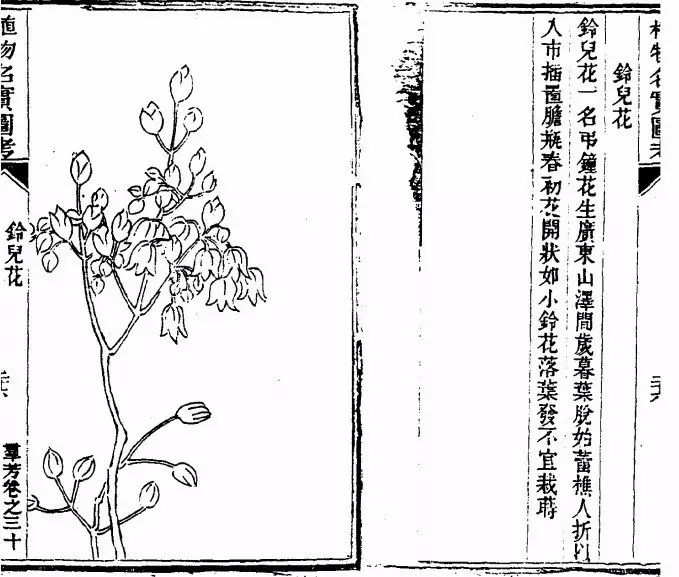 植物名實圖考
鈴兒花
鈴兒花一名弔鐘花生廣東山澤間歲暮葉脫始蕾樵人折以
入市插置膽瓶春初花開狀如小鈴花落葉發不宜栽蒔
植物名實圖考
鈴兒花
羣芳卷之三十